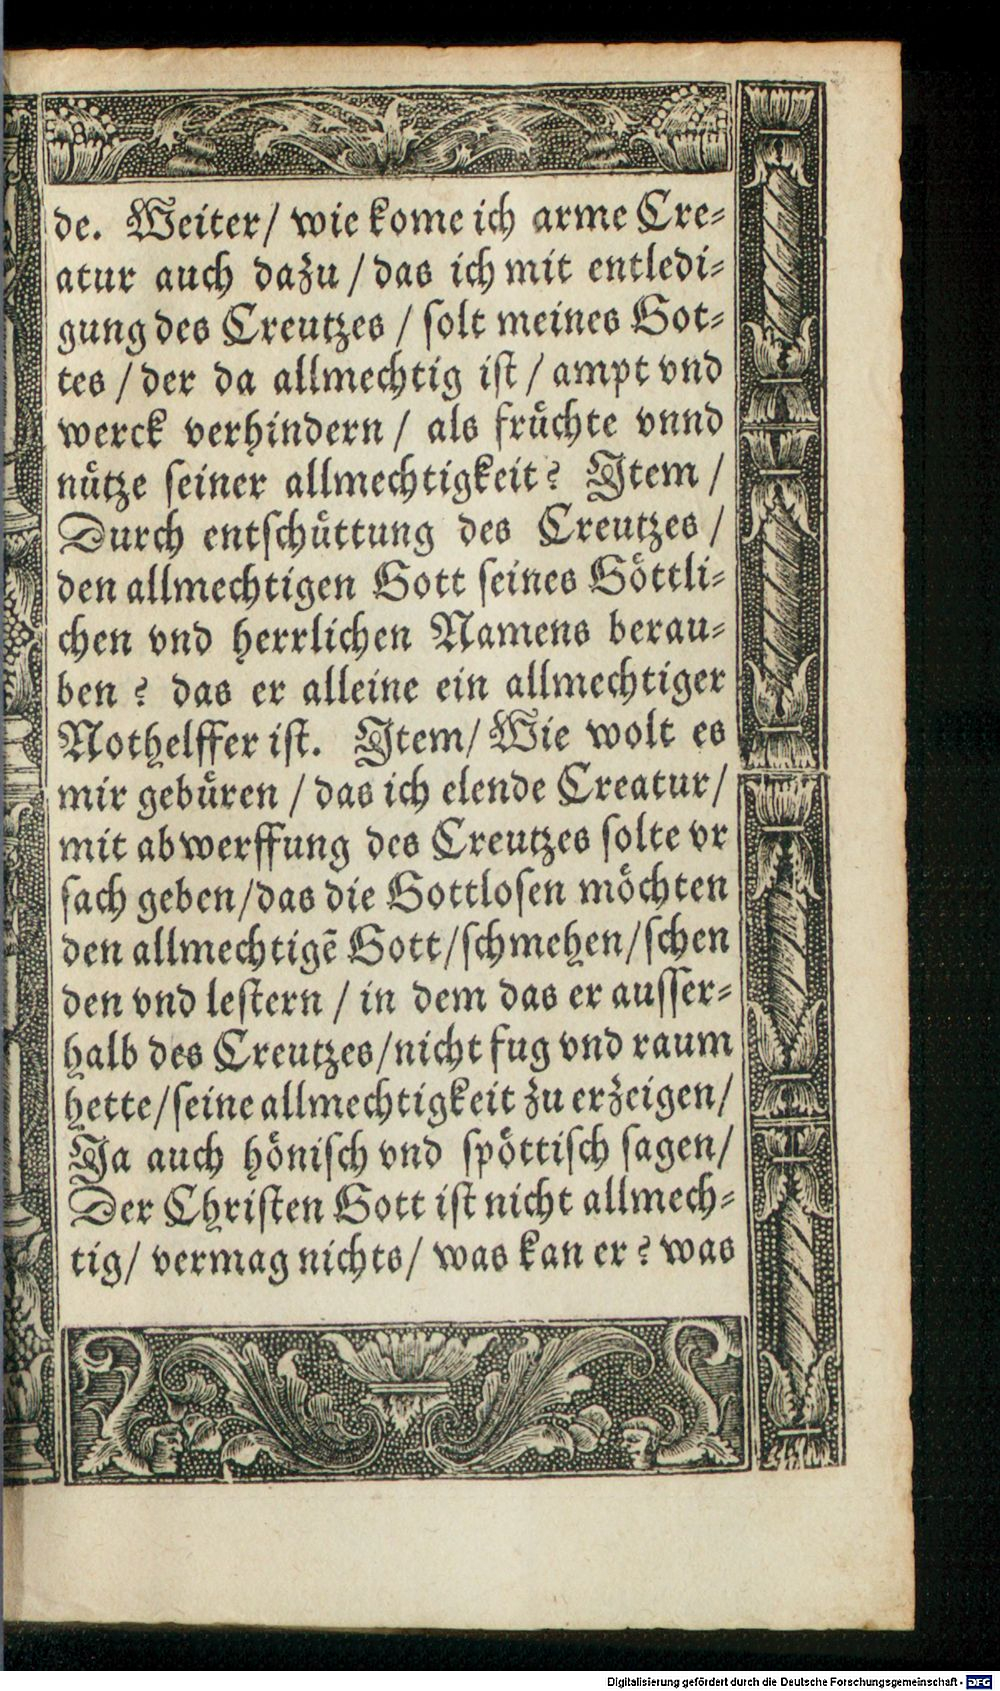 de. Weiter/ wie kome ich arme Cre-
atur auch dazu / das ich mit entledi-
gung des Creutzes / solt meines Got-
tes / der da allmechtig ist / ampt vnd
werck verhindern / als fruͤchte vnnd
nuͤtze seiner allmechtigkeit? Item /
Durch entschuͤttung des Creutzes /
den allmechtigen Gott seines Goͤttli-
chen vnd herrlichen Namens berau-
ben? das er alleine ein allmechtiger
Nothelffer ist. Item/ Wie wolt es
mir gebuͤren / das ich elende Creatur/
mit abwerffung des Creutzes solte vr
sach geben/das die Gottlosen moͤchten
den allmechtigẽ Gott/schmehen/schen
den vnd lestern / in dem das er ausser-
halb des Creutzes/nicht fug vnd raum
hette/seine allmechtigkeit zu erzeigen/
Ja auch hoͤnisch vnd spoͤttisch sagen/
Der Christen Gott ist nicht allmech-
tig/ vermag nichts/ was kan er? was
Digitalisierung gefördert durch die Deutsche Forschungsgemeinschaft - DFG